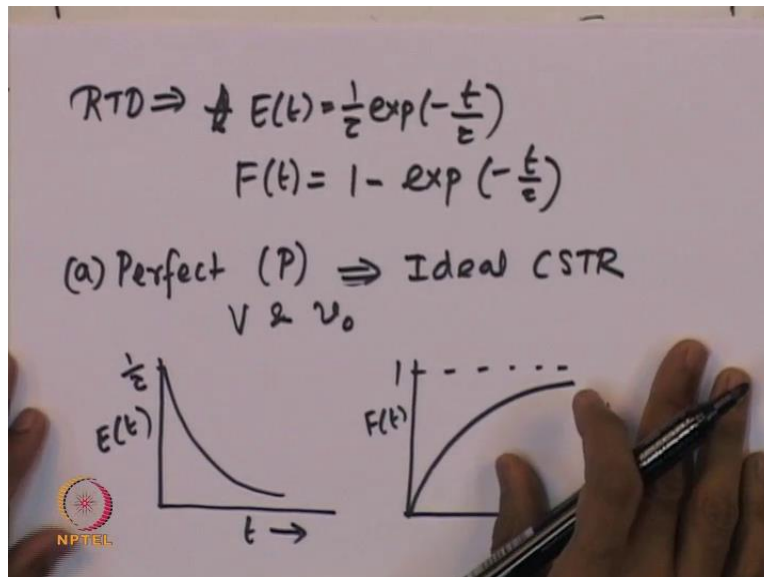 RTD ⇒ E(t) = 1/τ exp(-t/τ)
F(t) = 1 - exp(-t/τ)
(a) Perfect (P) ⇒ Ideal CSTR
V & v₀
1/τ
E(t)
t →
1
F(t)
NPTEL